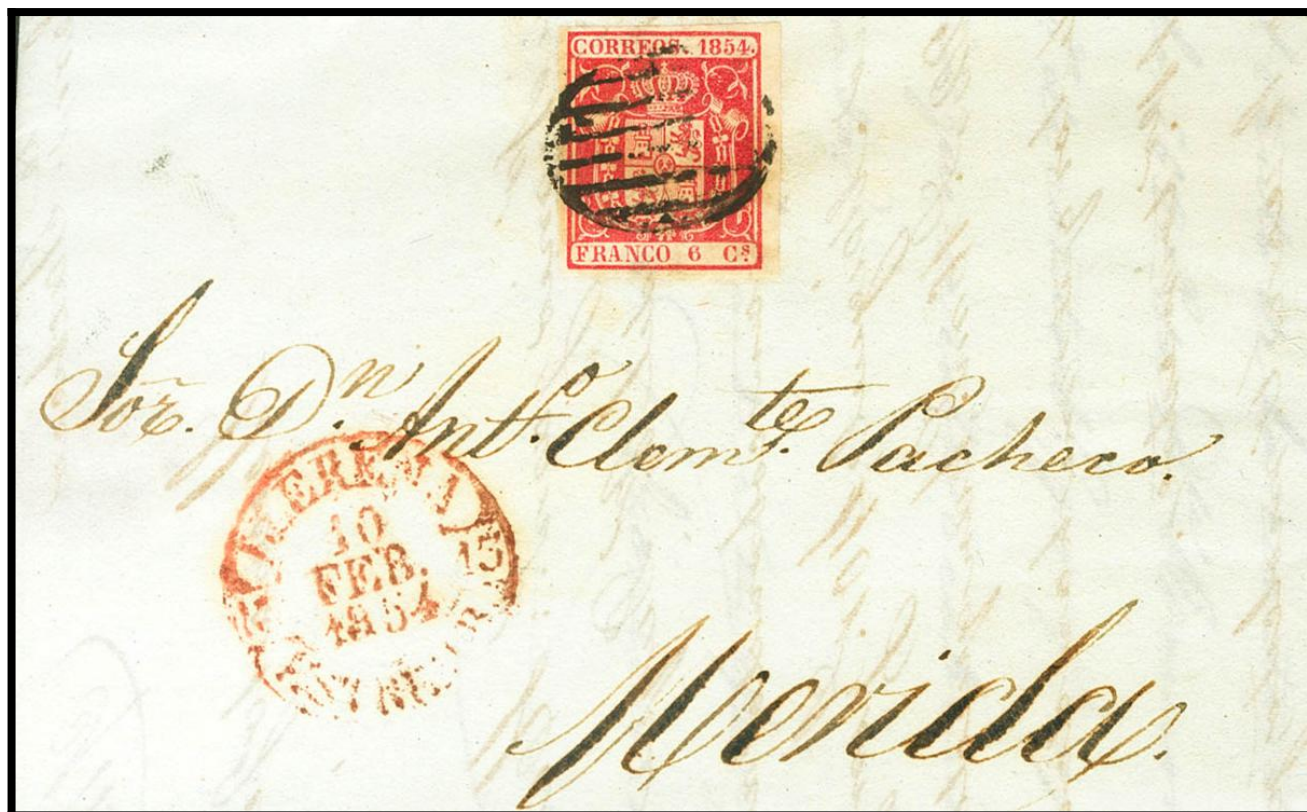 CORREOS. 1854.
FRANCO 6 Cs
Sor. Dn Anto. Clemte. Pacheco.
LLERENA
10
FEB.
1854
15
Merida.